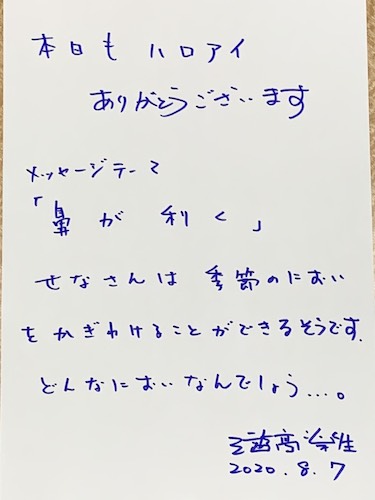 本日も ハロアイ
ありがとうございます
メッセージテーマ
「鼻が利く」
せなさんは 季節のにおい
をかぎわけることができるそうです.
どんなにおいなんでしょう…。
2020.8.7